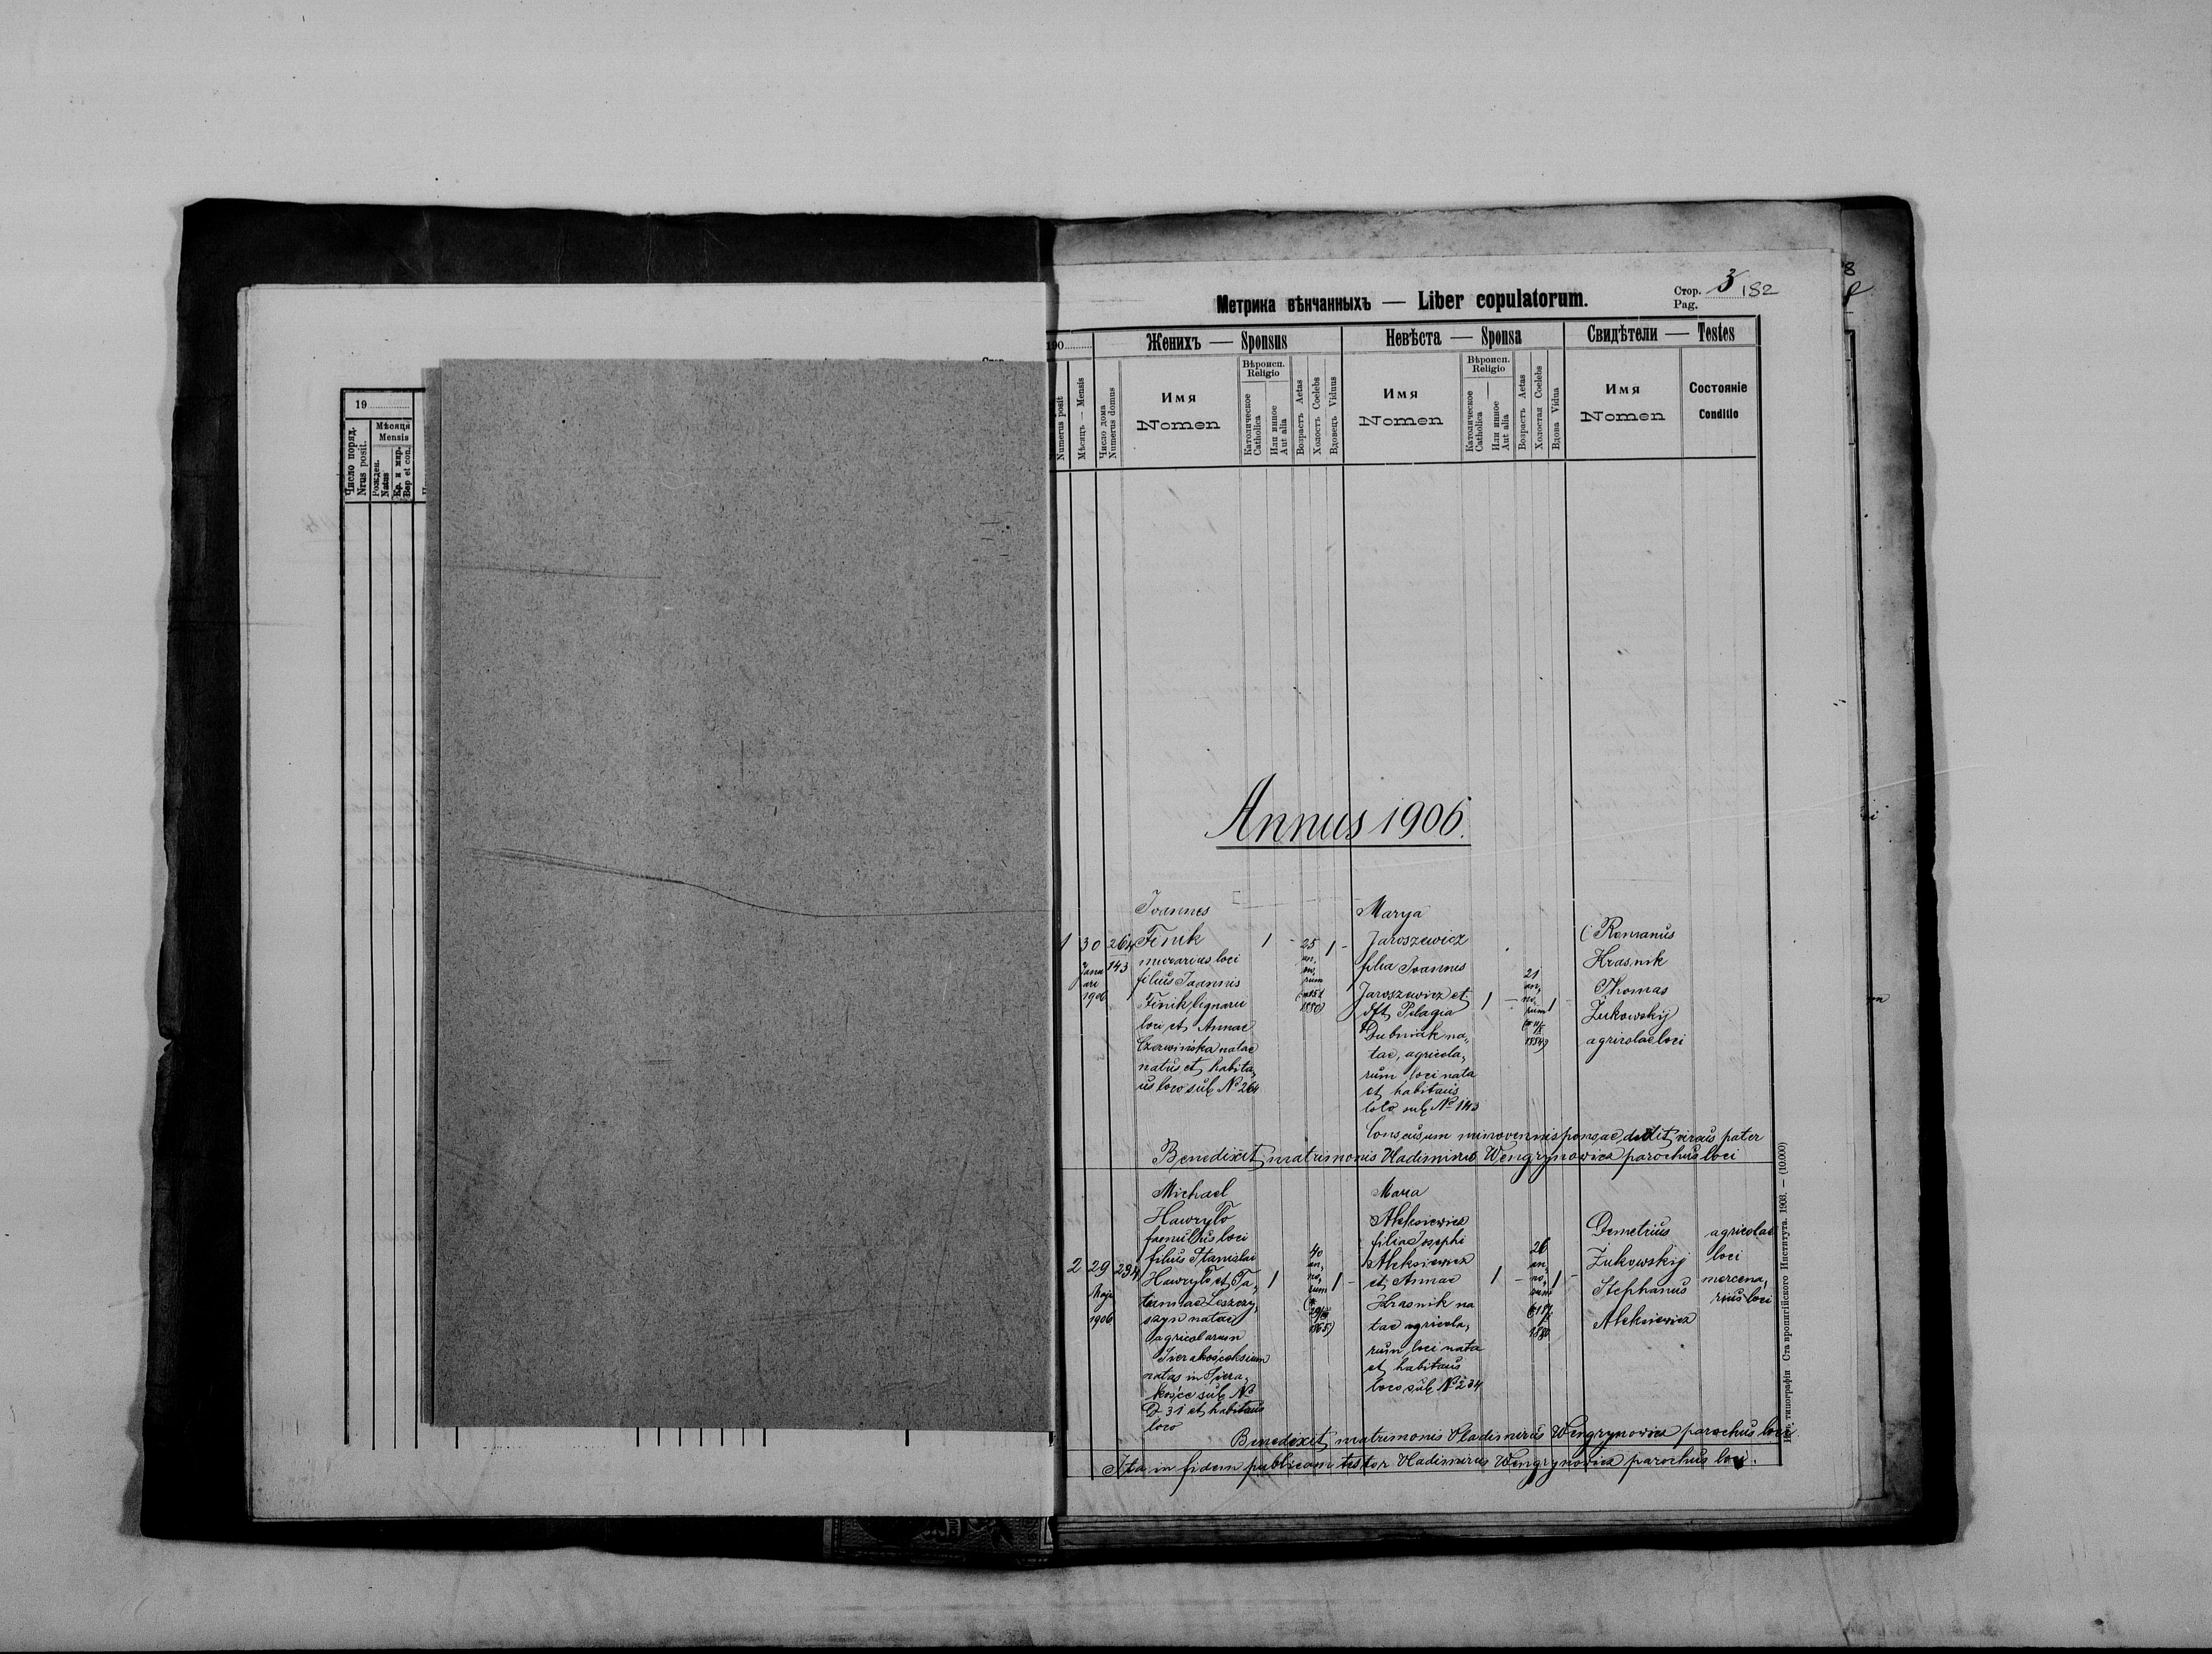 Метрика вѣнчанныхъ — Liber copulatorum.
Стор. Pag. 3 182
190
Женихъ — Sponsus
Невѣста — Sponsa
Свидѣтели — Testes
Numerus posit
Мѣсяць — Mensis
Число дома Numerus domus
Имя Nomen
Вѣроисп. Religio
Католическое Catholica
Или инное Aut alia
Возрасть Aetas
Холость Coelebs
Вдовець Viduus
Имя Nomen
Вѣроисп. Religio
Католическое Catholica
Или инное Aut alia
Возрасть Aetas
Холостая Coelebs
Вдова Vidua
Имя Nomen
Состояніе Conditio
19
Число поряд. Nrus posit.
Мѣсяця Mensis
Рожден. Natus
Кр. и мѵр. Bap et con.
Annus 1906.
1
30 Januari 1906
264
143
Joannes
Finik
murarius loci
filius Joannis
Finik, lignarii
loci et Annae
Czerwińska natae
natus et habita„
us loco sub No 264
1 -
25 an„ no„ rum
1880)
1 -
Marya
Jaroszewicz
filia Joannis
Jaroszewicz et
dft Pelagia
Dubniak na„
tae, agricola„
rum loci nata
et habitans
loco sub No 143
1 -
21 an„ no„ rum
1884)
1 -
Romanus
Hrasnik
Thomas
Żukowskij
agricolae loci
Consensum minorennis sponsae dedit virens pater
Benedixit matrimonis Vladimirus Wengrynowicz parochus loci
2
29 Maja 1906
234
Michael
Hawryło
famulus loci
filius Stanislai
Hawryło et Ta„
tiannae Leszczy„
szyn natae
agricolarum
natus in Siera„
kośce sub No
D. 31 et habitans
loco
1
40 an„ no„ rum
1865)
1 -
Maria
Aleksiewicz
filia Josephi
Aleksiewicz
et Annae
Hrasnik na
tae agricola„
rum loci nata
et habitans
loco sub No 234
1 -
26 an„ no„ rum
1880
1 -
Demetrius
Żukowskij
Stephanus
Aleksiewicz
agricolae
loci
mercena„
rius loci
Benedixit matrimonis Vladimirus Wengrynowicz parochus loci
Ita in fidem publicam testor Vladimirus Wengrynowicz parochus loci.
Изъ типографіи Ставропигійского Института. 1903. — (10.000)